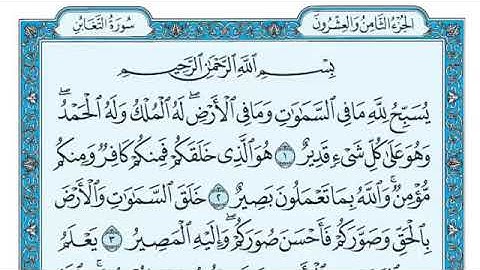 الجزء الثامن والعشرون
سورة التغابن
بِسْمِ اللَّهِ الرَّحْمَٰنِ الرَّحِيمِ
يُسَبِّحُ لِلَّهِ مَا فِي السَّمَاوَاتِ وَمَا فِي الْأَرْضِ ۖ لَهُ الْمُلْكُ وَلَهُ الْحَمْدُ ۖ
وَهُوَ عَلَىٰ كُلِّ شَيْءٍ قَدِيرٌ ١ هُوَ الَّذِي خَلَقَكُمْ فَمِنكُمْ كَافِرٌ وَمِنكُم
مُّؤْمِنٌ ۚ وَاللَّهُ بِمَا تَعْمَلُونَ بَصِيرٌ ٢ خَلَقَ السَّمَاوَاتِ وَالْأَرْضَ
بِالْحَقِّ وَصَوَّرَكُمْ فَأَحْسَنَ صُوَرَكُمْ ۖ وَإِلَيْهِ الْمَصِيرُ ٣ يَعْلَمُ